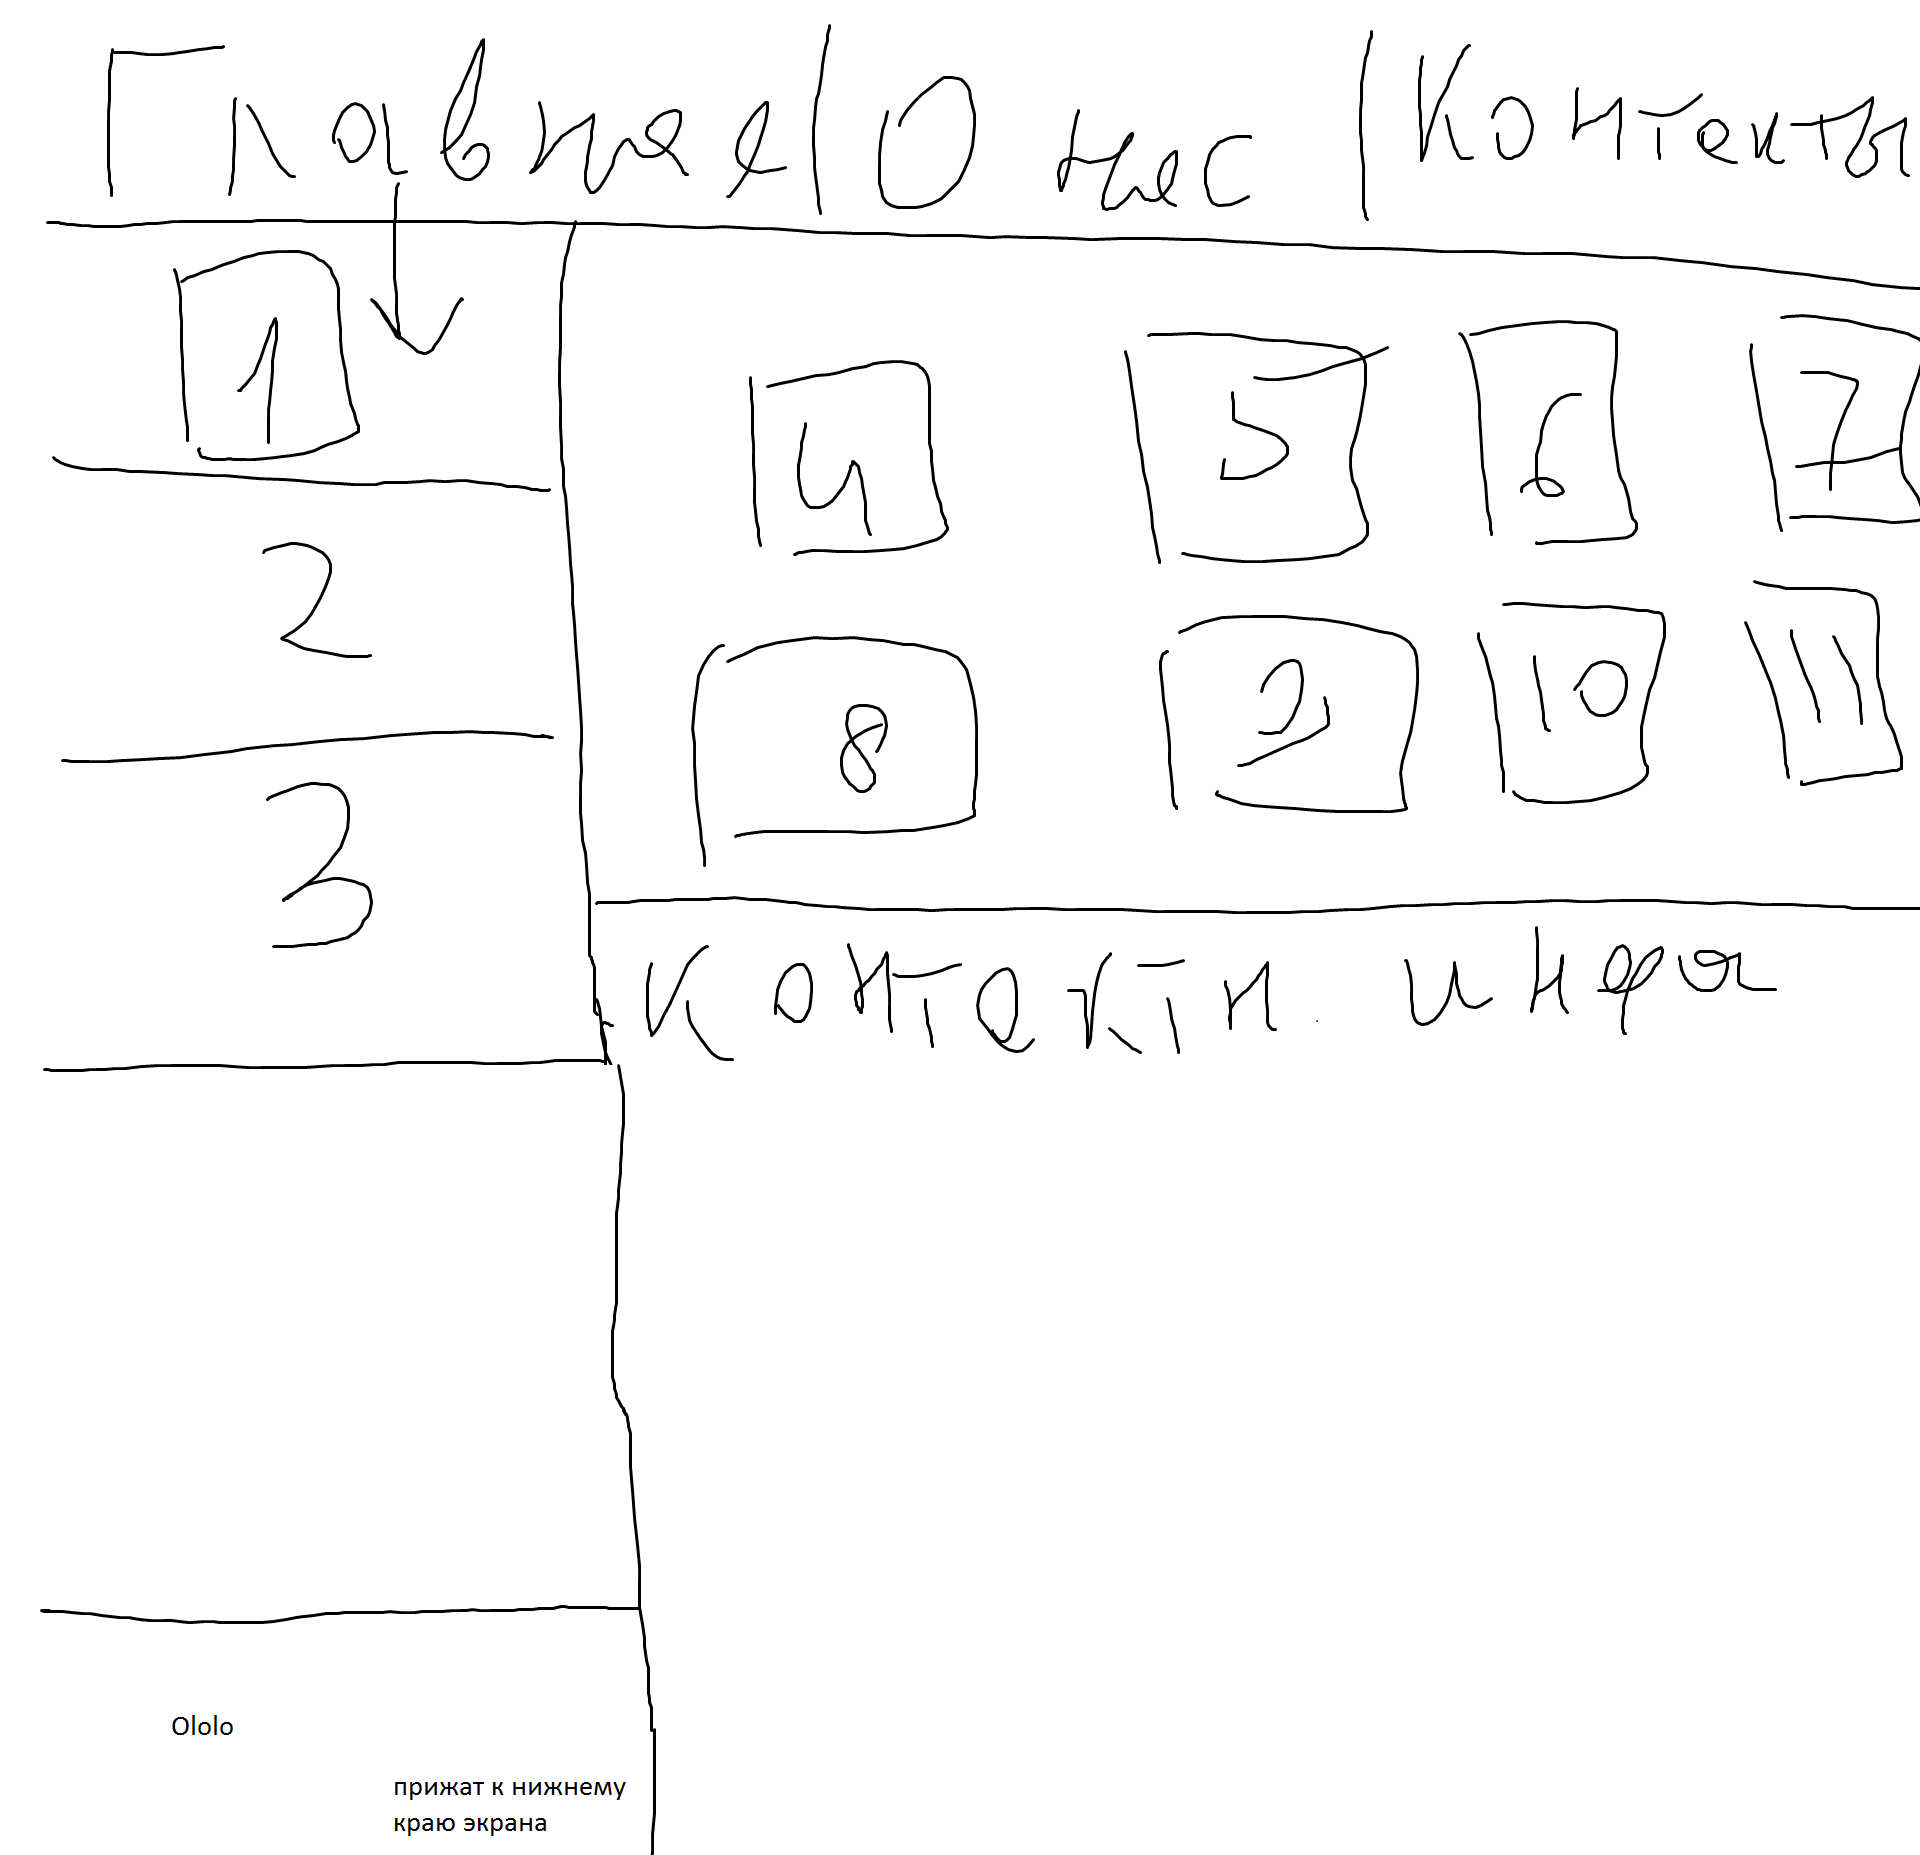 Главная | О нас | Контакты
1
4 5 6 7
2
8 9 10 11
3
Контактн. инфа
Ololo
прижат к нижнему
краю экрана